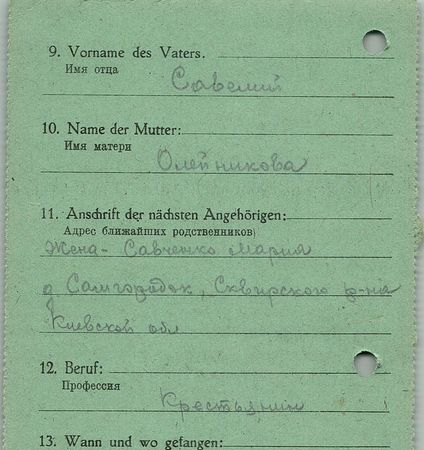 9. Vorname des Vaters.
Имя отца
Савелий
10. Name der Mutter:
Имя матери
Олейникова
11. Anschrift der nächsten Angehörigen:
Адрес ближайших родственников)
Жена - Савченко Мария
д Самгородок, Сквирского р-на
Киевской обл
12. Beruf:
Профессия
Крестьянин
13. Wann und wo gefangen: